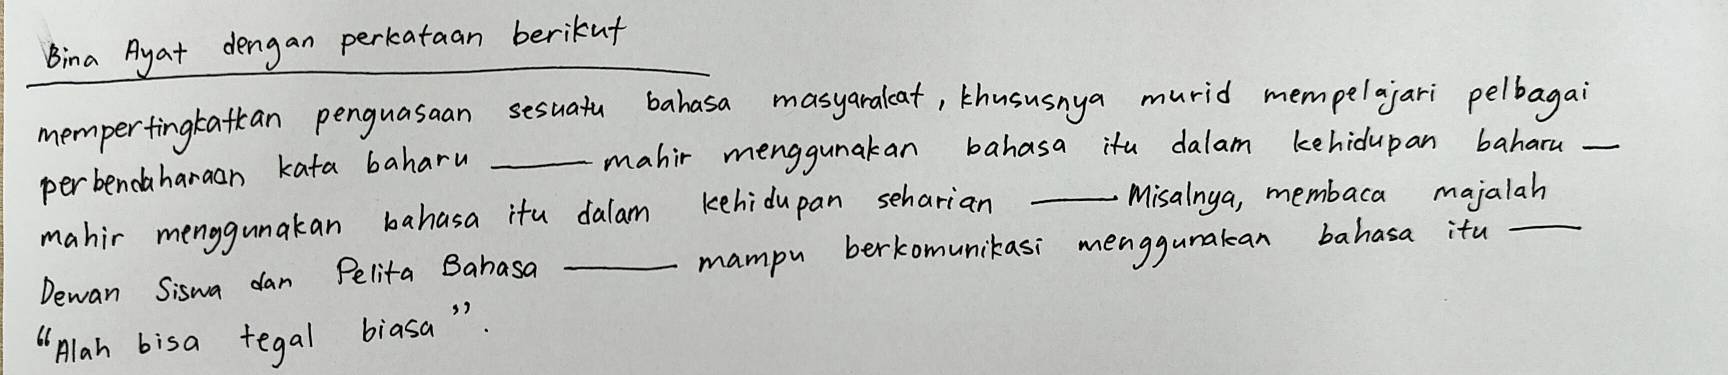 Bina Ayat dengan perkataan berikut
mempertingkatkan penguasaan sesuatu bahasa masyarakat, khususnya murid mempelajari pelbagai
perbendaharaan kata baharu ____ mahir menggunakan bahasa itu dalam kehidupan baharu __
mahir menggunakan bahasa itu dalam kehidupan seharian ____ Misalnya, membaca majalah
Dewan Siswa dan Pelita Bahasa ____ mampu berkomunikasi menggunakan bahasa itu ____
"Alah bisa tegal biasa".